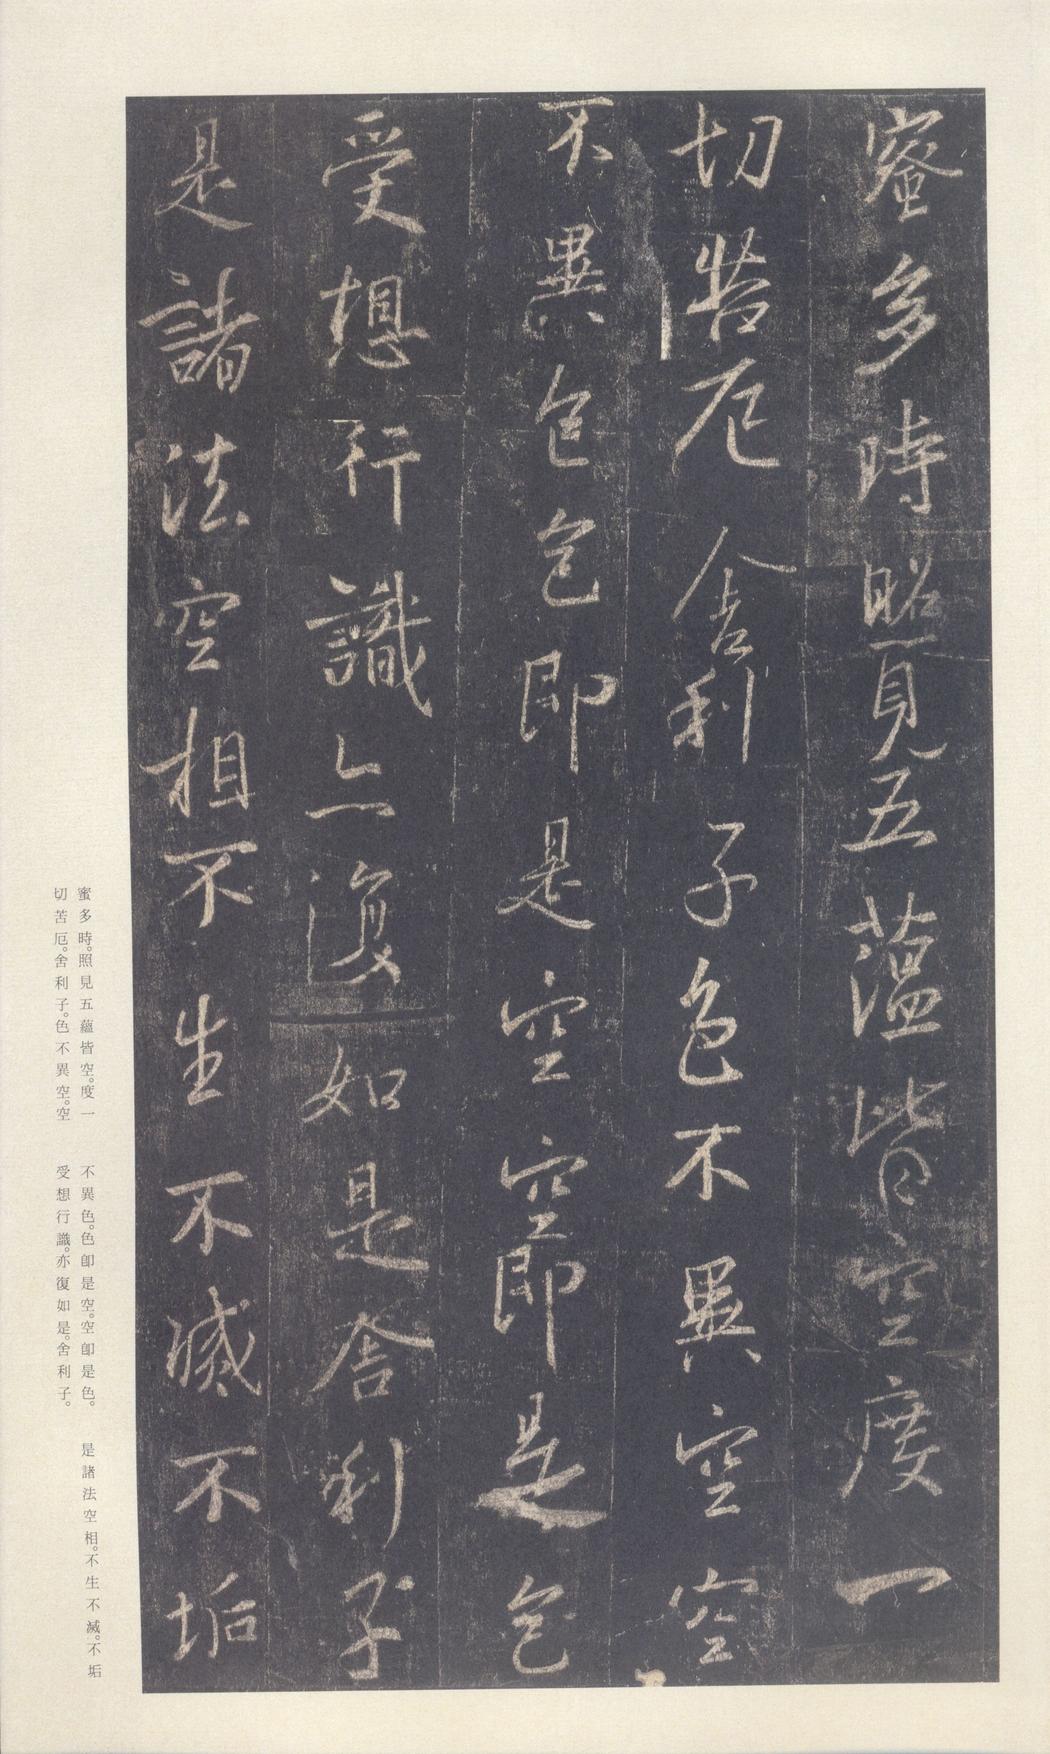 蜜多時照見五蘊皆空度一
切苦厄舍利子色不異空空
不異色色即是空空即是色
受想行識亦復如是舍利子
是諸法空相不生不滅不垢
蜜多時。照見五蘊皆空。度一
切苦厄。舍利子。色不異空。空
不異色。色卽是空。空卽是色。
受想行識。亦復如是。舍利子。
是諸法空相。不生不滅。不垢